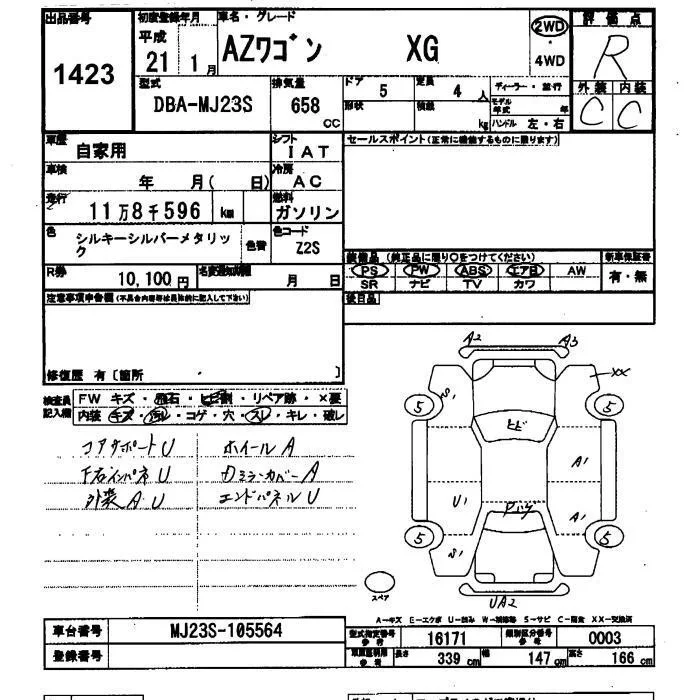 出品番号 初度登録年月 車名・グレード 2WD 評価点
1423 平成 21 1月 AZワゴン XG ・ 4WD R
型式 排気量 ドア 定員 ディーラー・並行 外装 内装
DBA-MJ23S 658 CC 5 4人 C C
形状 積載 kg モデル年式 年 ハンドル 左・右
車歴 自家用 シフト IAT セールスポイント(正常に機能するものに限ります)
車検 年 月( 日) 冷房 AC
走行 11万8千596 km 燃料 ガソリン
色 シルキーシルバーメタリック 色替 色コード Z2S
装備品(純正品に限り○をつけてください) 新車保証書
PS PW ABS エアB AW 有・無
SR ナビ TV カワ
R券 10,100円 名変通知期限 月 日 後日品
注意事項申告欄(不具合内容等は具体的に記入して下さい)
修復歴 有〔箇所 ・ 〕
検査員記入欄 FW キズ・飛石・ヒビ割・リペア跡・×要
内装 キズ・汚レ・コゲ・穴・スレ・キレ・破レ
コアサポートU ホイールA
下右インパネU Dミラーカバー A
外装A U エンドパネルU
A2 A3
S1 XX
5 5
ヒビ
A1
U1 A1
5 5
S1
UA2
スペア
A－キズ E－エクボ U－凹み W－補修等 S－サビ C－腐食 XX－交換済
車台番号 MJ23S-105564 型式指定番号 参考 16171 類別区分番号 参考 0003
登録番号 参考 長さ 339 cm 幅 147 cm 高さ 166 cm